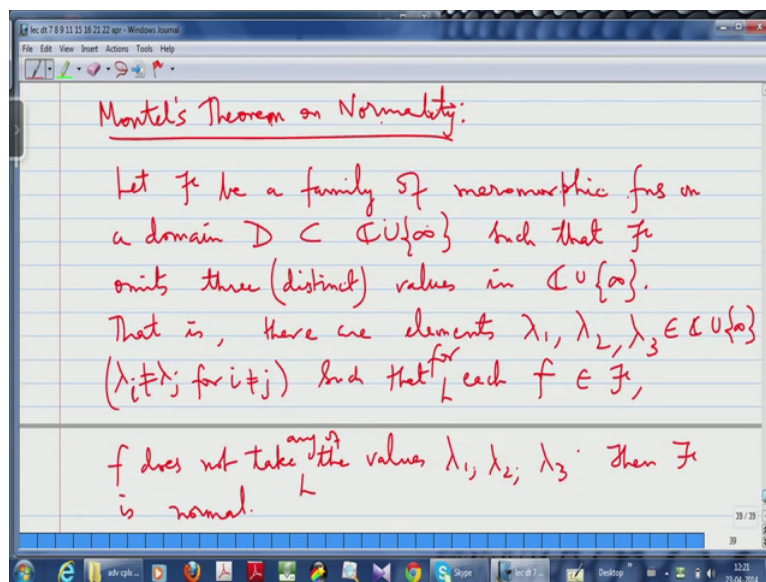 lec dt 7 8 9 11 15 16 21 22 apr - Windows Journal
File Edit View Insert Actions Tools Help
Montel's Theorem on Normality:
Let ℱ be a family of meromorphic fns on
a domain D ⊂ ℂ ∪ {∞} such that ℱ
omits three (distinct) values in ℂ ∪ {∞}.
That is, there are elements λ₁, λ₂, λ₃ ∈ ℂ ∪ {∞}
(λᵢ ≠ λⱼ for i ≠ j) such that for each f ∈ ℱ,
f does not take any of the values λ₁, λ₂, λ₃. Then ℱ
is normal.
39 / 39
39
adv cplv...
Skype
lec dt 7...
Desktop
12:21
23-04-2014